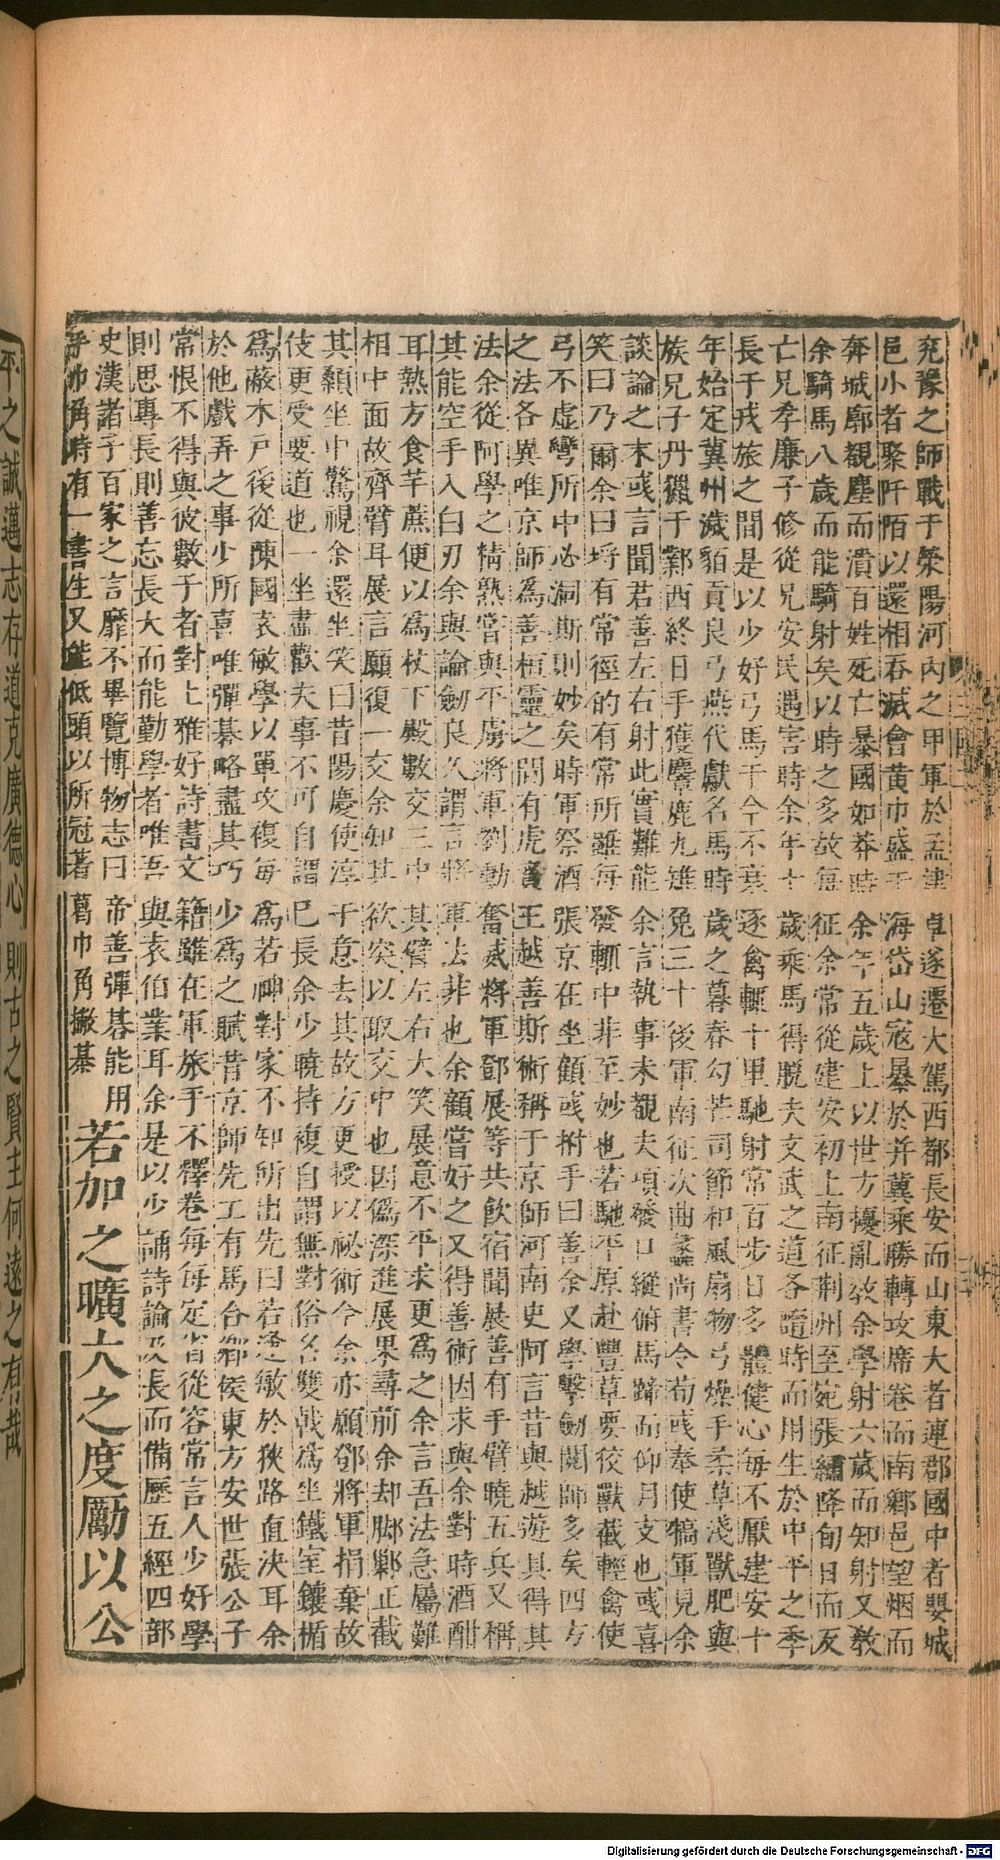 兗豫之師戰于滎陽河內之甲軍於孟津卓遂遷大駕西都長安而山東大者連郡國中者嬰城
邑小者聚阡陌以還相吞滅會黃巾盛于海岱山寇暴於并冀乘勝轉攻席卷而南鄉邑望烟而
奔城廓覩塵而潰百姓死亡暴國如莽時余年五歲上以世方擾亂教余學射六歲而知射又教
余騎馬八歲而能騎射矣以時之多故每征余常從建安初上南征荆州至宛張繡降旬日而反
亡兄孝廉子修從兄安民遇害時余年十歲乘馬得脫夫文武之道各隨時而用生於中平之季
長于戎旅之間是以少好弓馬于今不衰逐禽輒十里馳射常百步日多體健心每不厭建安十
年始定冀州濊貊貢良弓燕代獻名馬時歲之暮春勾芒司節和風扇物弓燥手柔草淺獸肥與
族兄子丹獵于鄴西終日手獲麞鹿九雉兔三十後軍南征次曲蠡尚書令荀彧奉使犒軍見余
談論之末彧言聞君善左右射此實難能余言執事未覩夫項發口縱俯馬蹄而仰月支也彧喜
笑曰乃爾余曰埓有常徑的有常所雖每發輒中非至妙也若馳平原赴豐草要狡獸截輕禽使
弓不虛彎所中必洞斯則妙矣時軍祭酒張京在坐顧彧拊手曰善余又學擊劒閱師多矣四方
之法各異唯京師爲善桓靈之間有虎賁王越善斯術稱于京師河南史阿言昔與越遊具得其
法余從阿學之精熟嘗與平虜將軍劉勳奮威將軍鄧展等共飲宿聞展善有手臂曉五兵又稱
其能空手入白刃余與論劒良久謂言將軍法非也余顧嘗好之又得善術因求與余對時酒酣
耳熱方食芊蔗便以爲杖下殿數交三中其臂左右大笑展意不平求更爲之余言吾法急屬難
相中面故齊臂耳展言願復一交余知其欲突以取交中也因僞深進展果尋前余却脚鄛正截
其顙坐中驚視余還坐笑曰昔陽慶使淳于意去其故方更授以祕術今余亦願鄧將軍捐棄故
伎更受要道也一坐盡歡夫事不可自謂己長余少曉持複自謂無對俗名雙戟爲坐鐵室鑲楯
爲蔽木戶後從陳國袁敏學以單攻複每爲若神對家不知所出先曰若逢敏於狹路直決耳余
於他戲弄之事少所喜唯彈棊略盡其巧少爲之賦昔京師先工有馬合鄉侯東方安世張公子
常恨不得與彼數子者對上雅好詩書文籍雖在軍旅手不釋卷每每定省從容常言人少好學
則思專長則善忘長大而能勤學者唯吾與袁伯業耳余是以少誦詩論及長而備歷五經四部
史漢諸子百家之言靡不畢覽博物志曰帝善彈棊能用
手巾角時有一書生又能低頭以所冠著葛巾角撇棊
若加之曠大之度勵以公
平之誠邁志存道克廣德心則古之賢主何遠之有哉
Digitalisierung gefördert durch die Deutsche Forschungsgemeinschaft - DFG